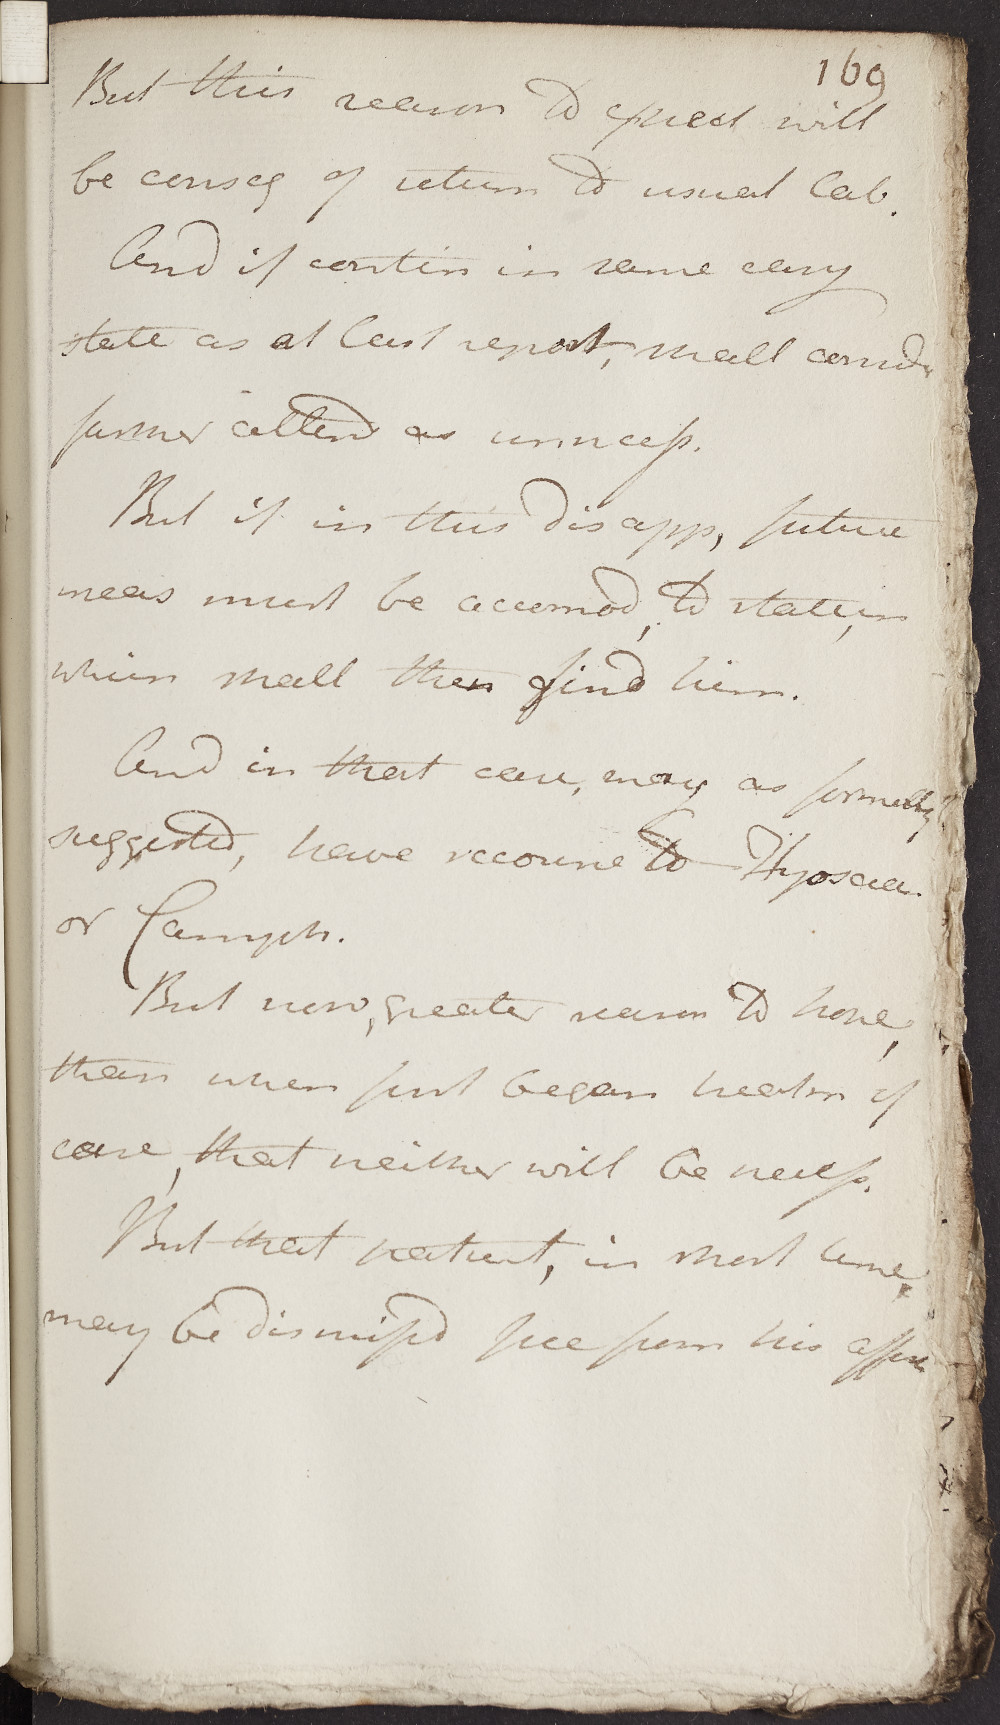 169
But this reason to expect will
be conseq of return to usual lab.
And if contin in same easy
state as at last report, shall consid
further attend as unnecess.
But if in this disapp, future
meas must be accomod, to state, in
which shall then find him.
And in that case, may as formerly
suggested, have recourse to Hyosciam.
or Camph.
But now, greater reason to hope,
than when first began treatm of
case, that neither will be necess.
But that patient, in short time,
may be dismissd free from his affect